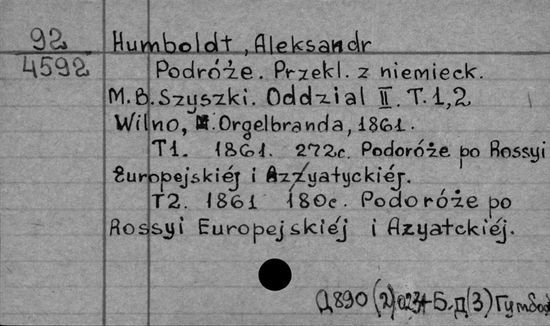 92
4592
Humboldt, Aleksandr
Podróże. Przekl. z niemieck.
M.B.Szyszki. Oddzial II. T.1,2
Wilno, Orgelbranda, 1861.
T1. 1861. 272c. Podoróże po Rossyi
Europejskiéj i Azzyatyckiéj.
T2. 1861 180c. Podoróże po
Rossyi Europejskiéj i Azyatckiéj.
Д890 (2) + Б.Д(3)